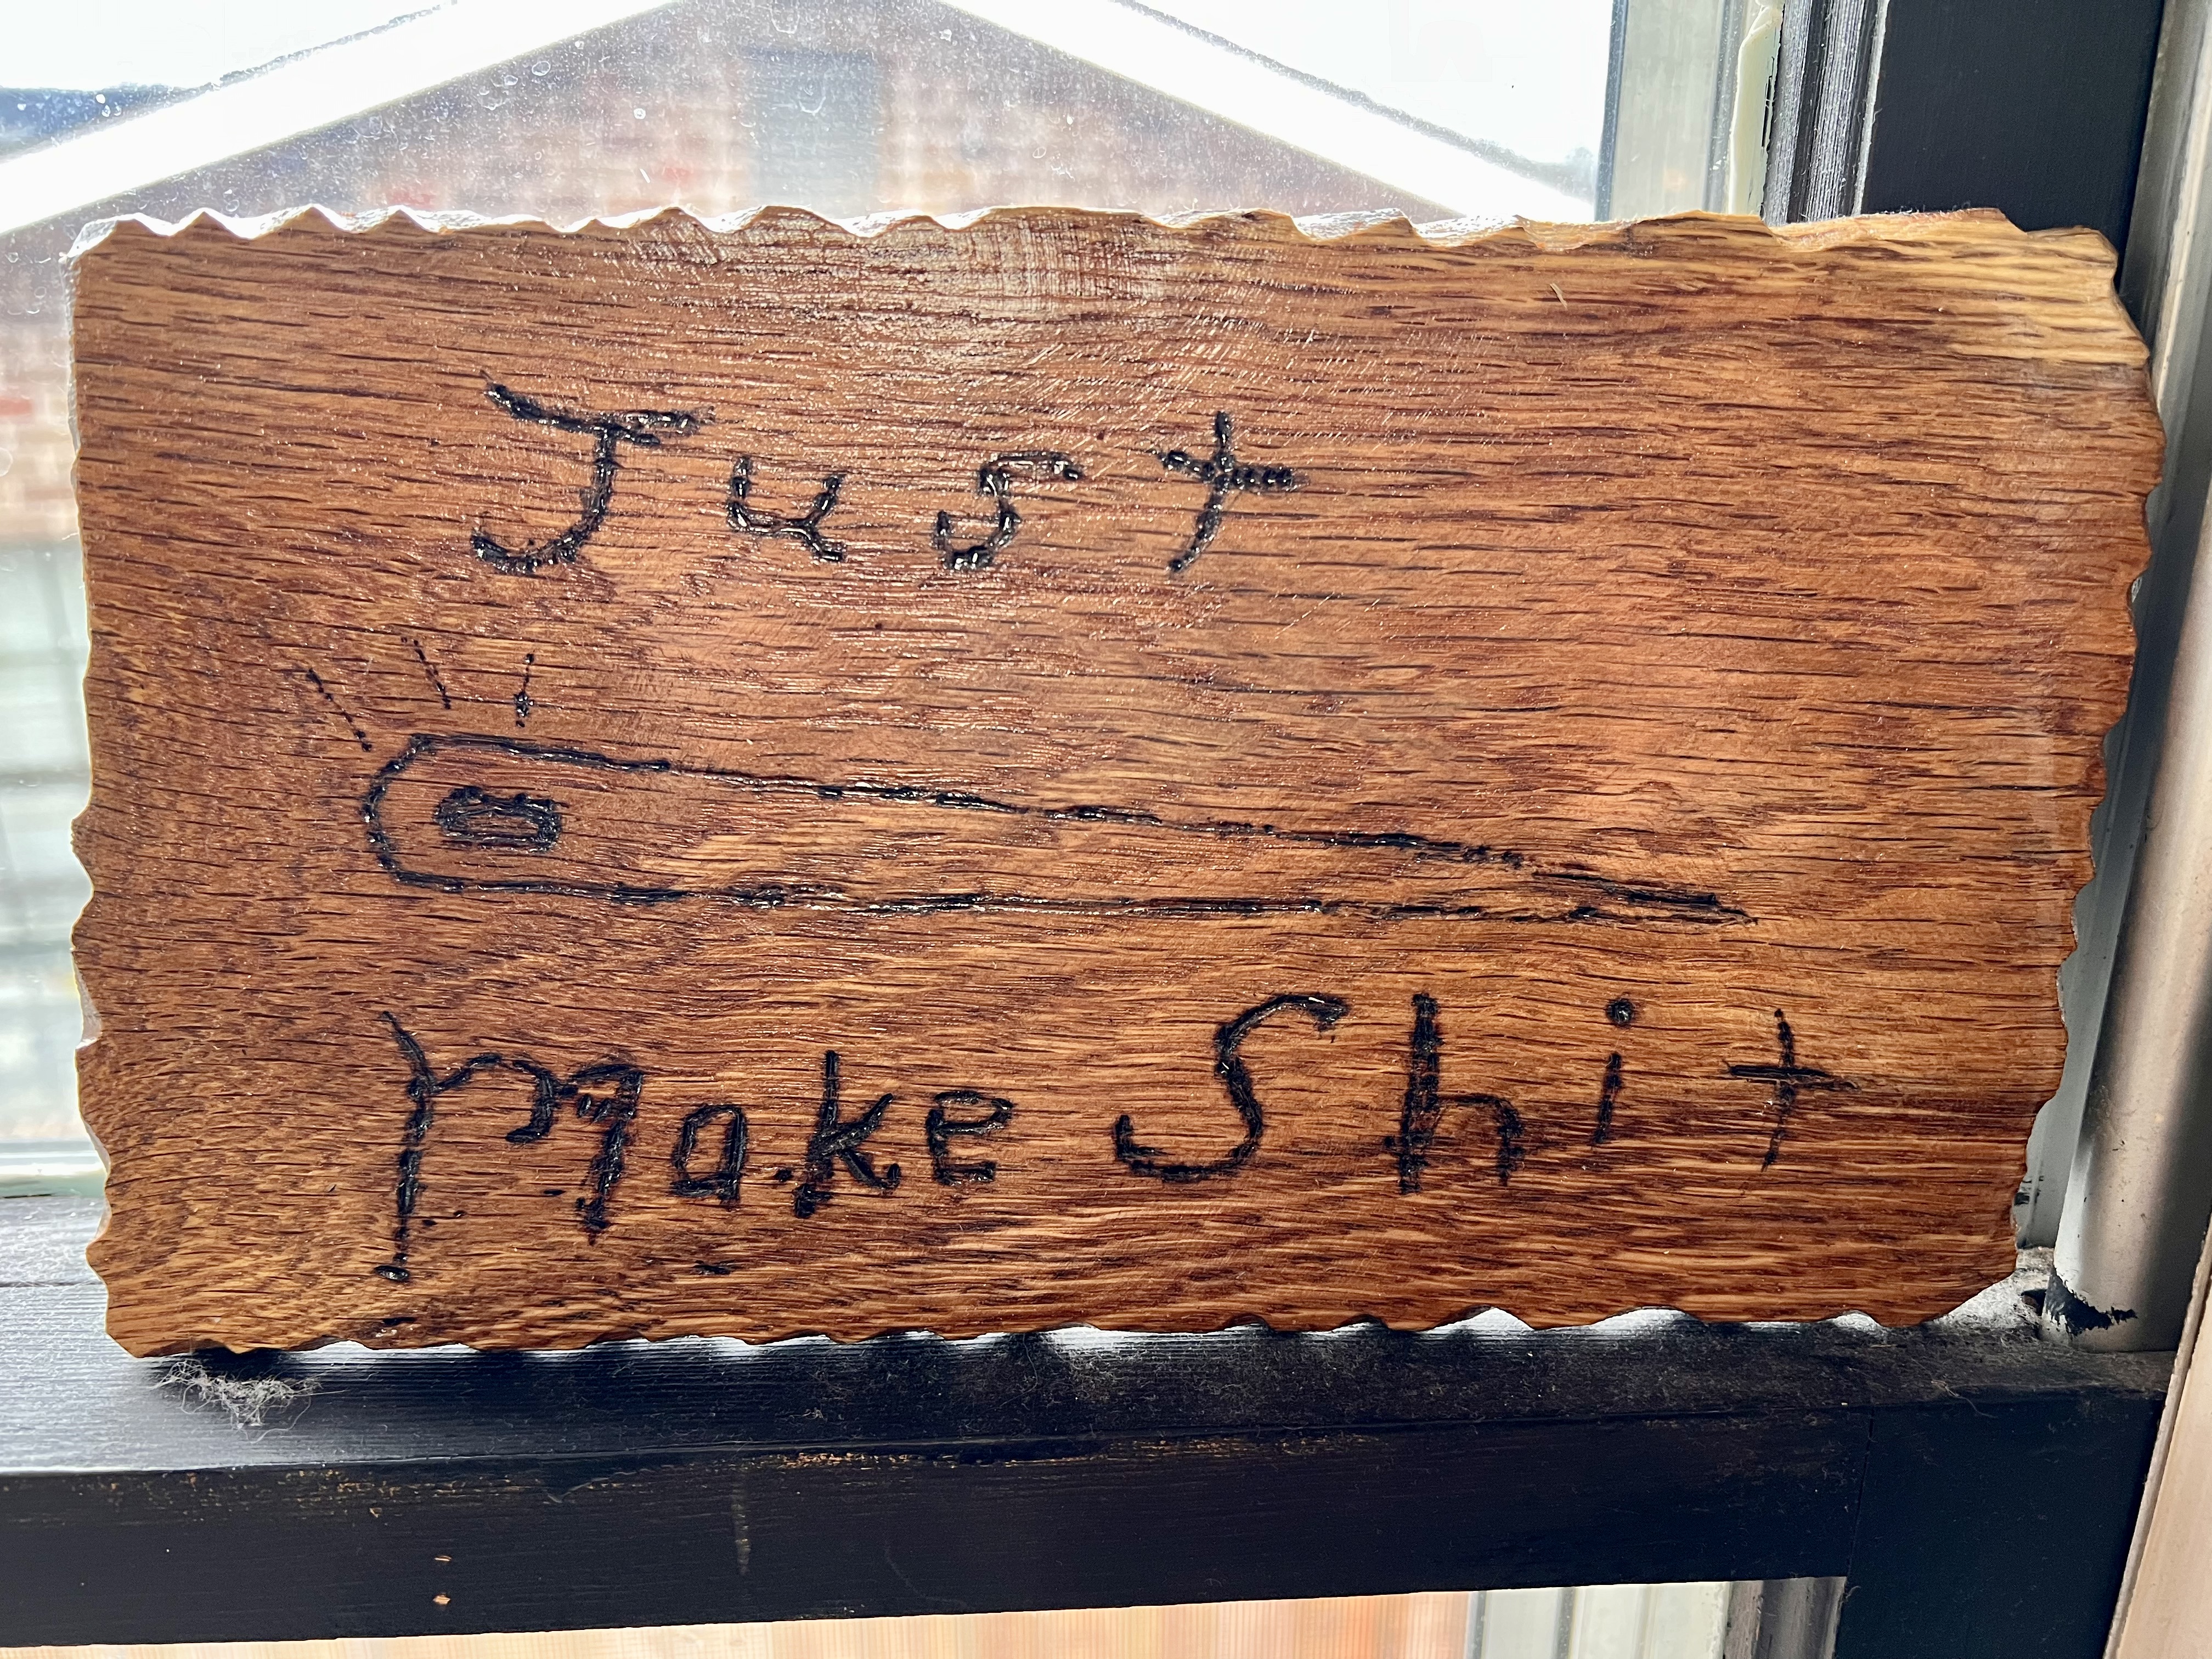 Just
Make Shit